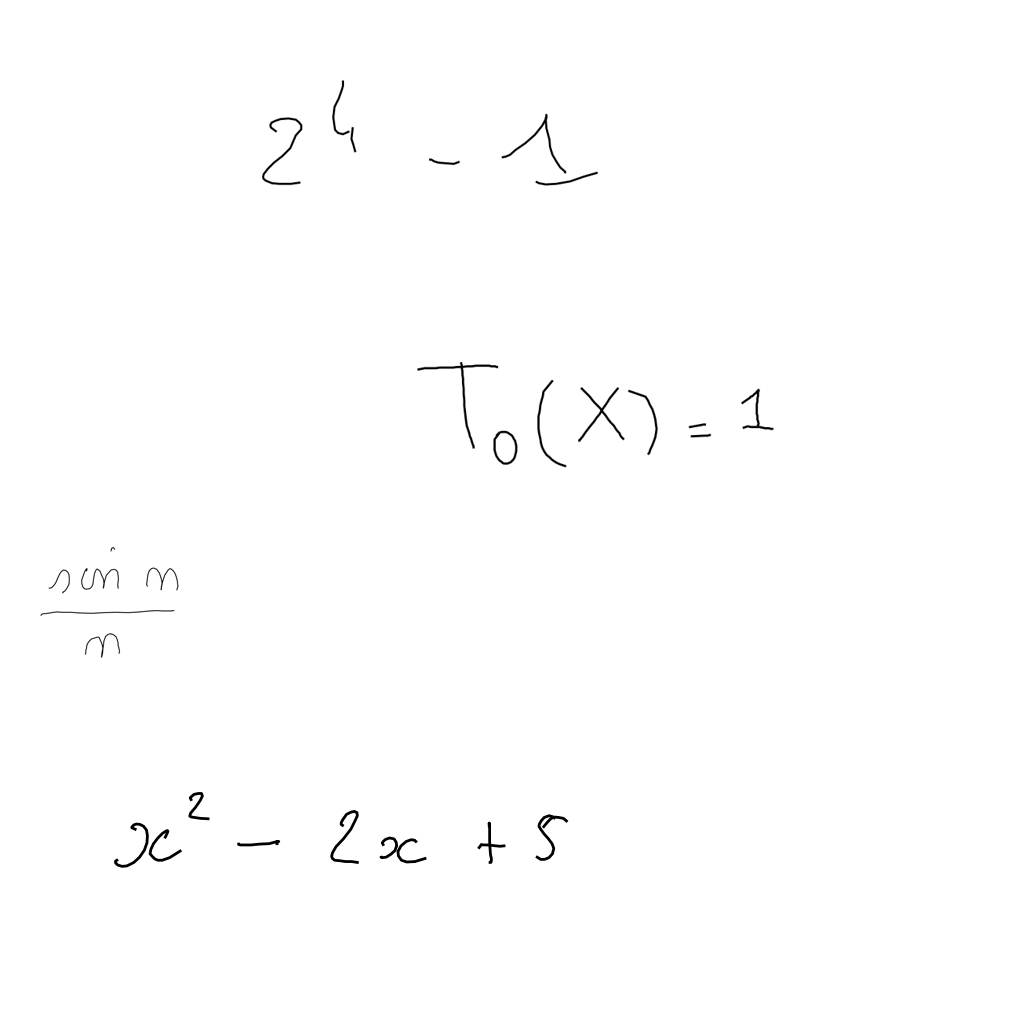 2^4 - 1
T_0(X) = 1
\frac{\sin n}{n}
x^2 - 2x + 5